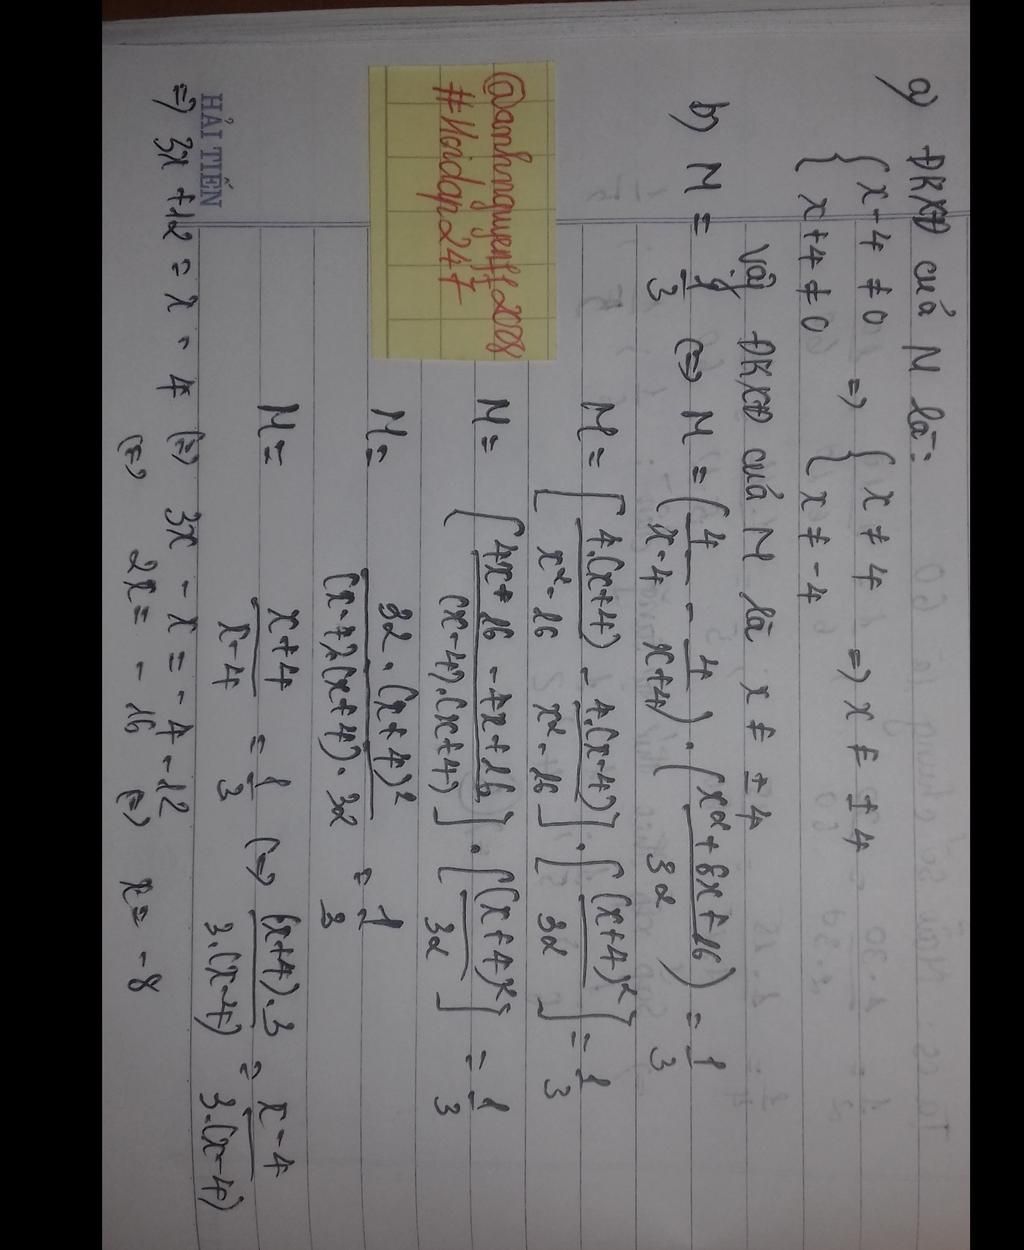 a) ĐKXĐ của M là:
{ x-4 ≠ 0 => { x ≠ 4 => x ≠ ±4
{ x+4 ≠ 0 { x ≠ -4
Vậy ĐKXĐ của M là x ≠ ±4
b) M = 1/3 <=> M = (4/(x-4) - 4/(x+4)) . (x²+8x+16)/32 = 1/3
M = [4.(x+4)/(x²-16) - 4.(x-4)/(x²-16)] . [(x+4)²/32] = 1/3
M = [(4x+16 - 4x+16)/((x-4).(x+4))] . [(x+4)²/32] = 1/3
M = 32.(x+4)²/((x-4).(x+4).32) = 1/3
M = (x+4)/(x-4) = 1/3 <=> (x+4).3/(3.(x-4)) = (x-4)/(3.(x-4))
=> 3x+12 = x-4 <=> 3x - x = -4 -12
<=> 2x = -16 <=> x = -8
@anhnguyen112008
#Hoidap247
HẢI TIẾN